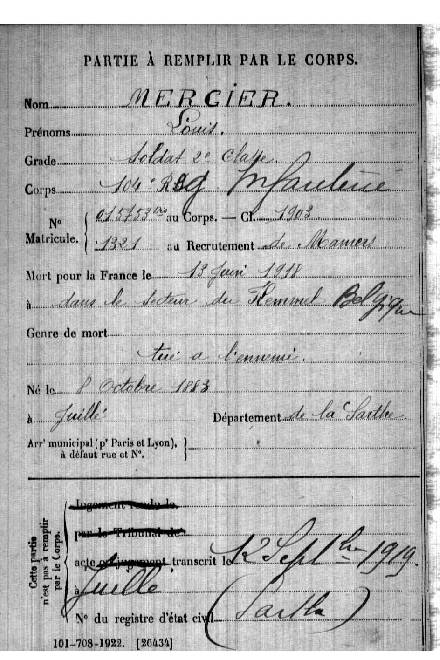 PARTIE À REMPLIR PAR LE CORPS.
Nom MERCIER.
Prénoms Louis.
Grade Soldat 2e Classe
Corps 104e Rég Infanterie
No Matricule. 015753 au Corps. — Cl. 1903
1321 au Recrutement de Mamers
Mort pour la France le 13 Juin 1918
à dans le secteur du Kemmel Belgique
Genre de mort
tué a l'ennemi.
Né le 8 Octobre 1883
à Juillé Département de la Sarthe
Arrt municipal (pr Paris et Lyon),
à défaut rue et No.
Cette partie n'est pas à remplir par le Corps.
Jugement rendu le
par le Tribunal de
acte ou jugement transcrit le 12 Septbre 1919.
à Juillé
No du registre d'état civil (Sarthe)
101-708-1922. [26434]